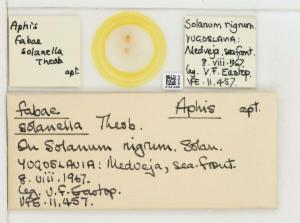 Aphis
fabae
solanella
Theob
apt.
Solanum nigrum.
YUGOSLAVIA:
Medveja, sea front.
8. viii. 1967
leg. V.F. Eastop.
VFE. 11,457.
fabae
solanella Theob.
Aphis apt.
On Solanum nigrum, Solan.
YUGOSLAVIA: Medveja, sea-front
8. viii. 1967.
leg. V.F. Eastop.
VFE. 11,457.